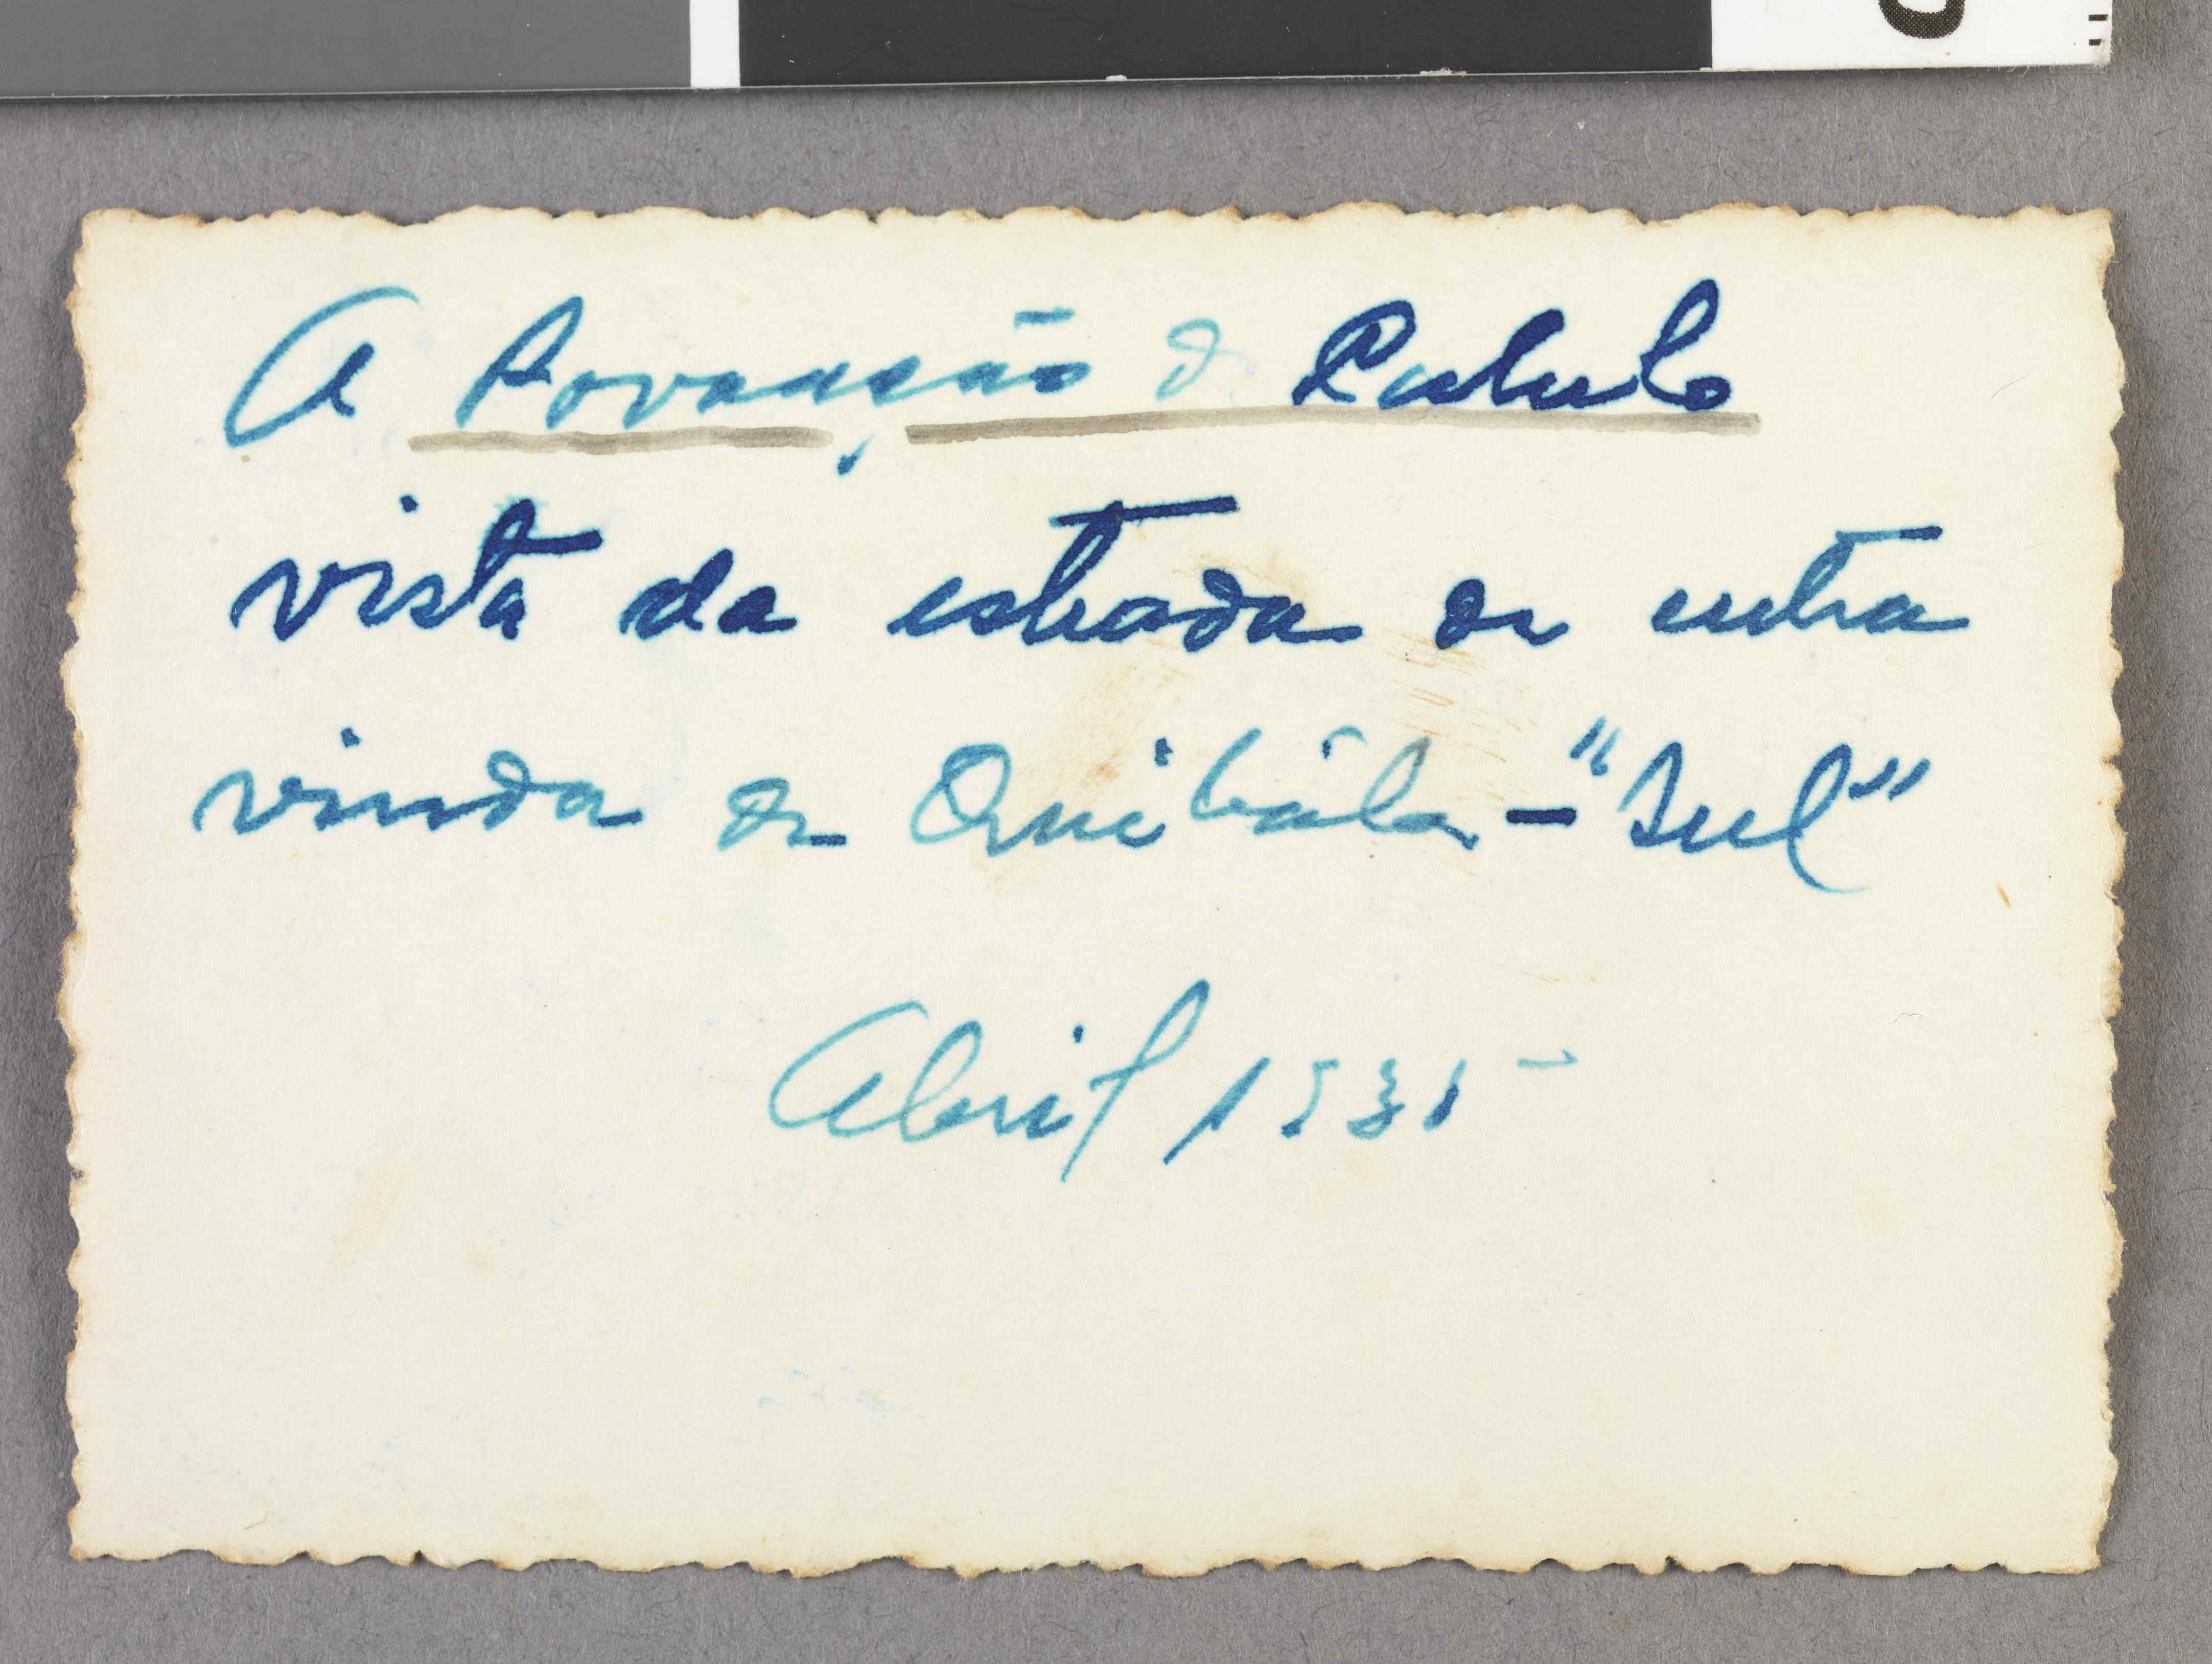 A Povoação de Calulo
vista da estrada de entra
vinda de Quibála - "Sul"
Abril 1935